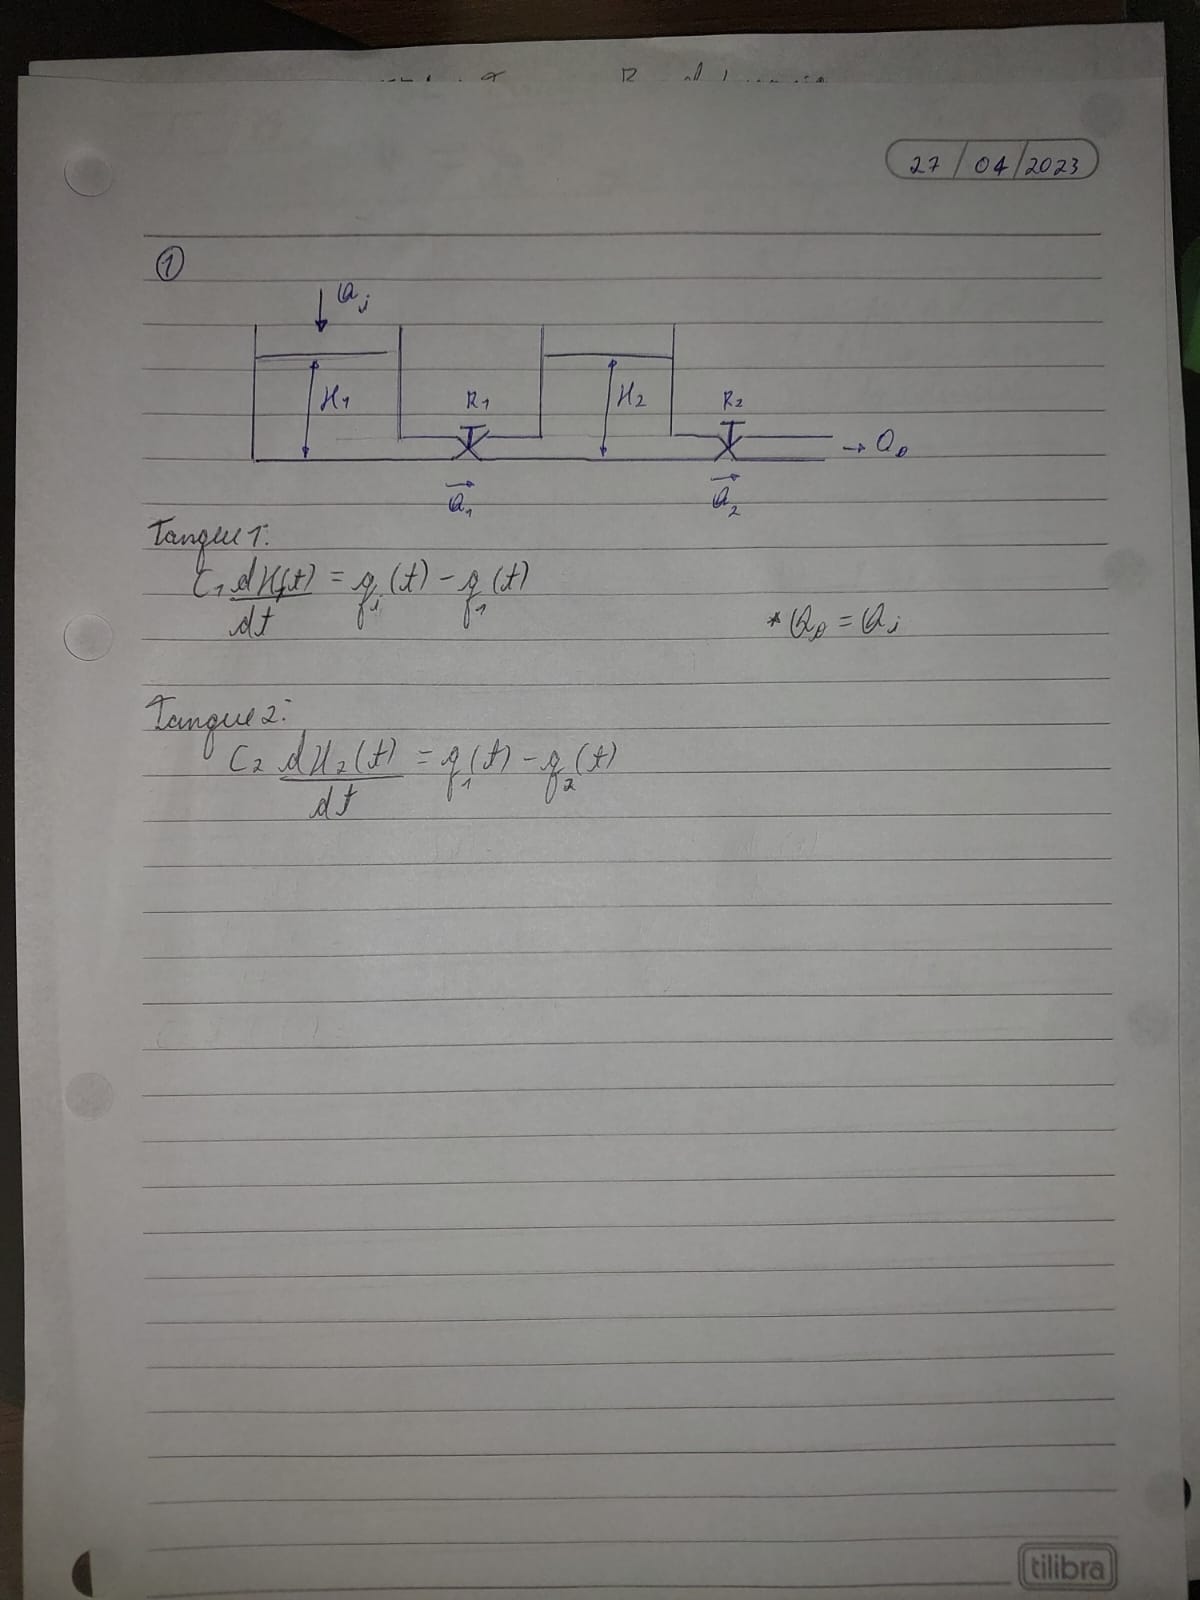 27 / 04 / 2023
①
Qi
H1
R1
H2
R2
→ Qo
Q1
Q2
Tanque 1:
C1 dH1(t) = qi(t) - q1(t)
dt
* Qo = Qi
Tanque 2:
C2 dH2(t) = q1(t) - q2(t)
dt
tilibra